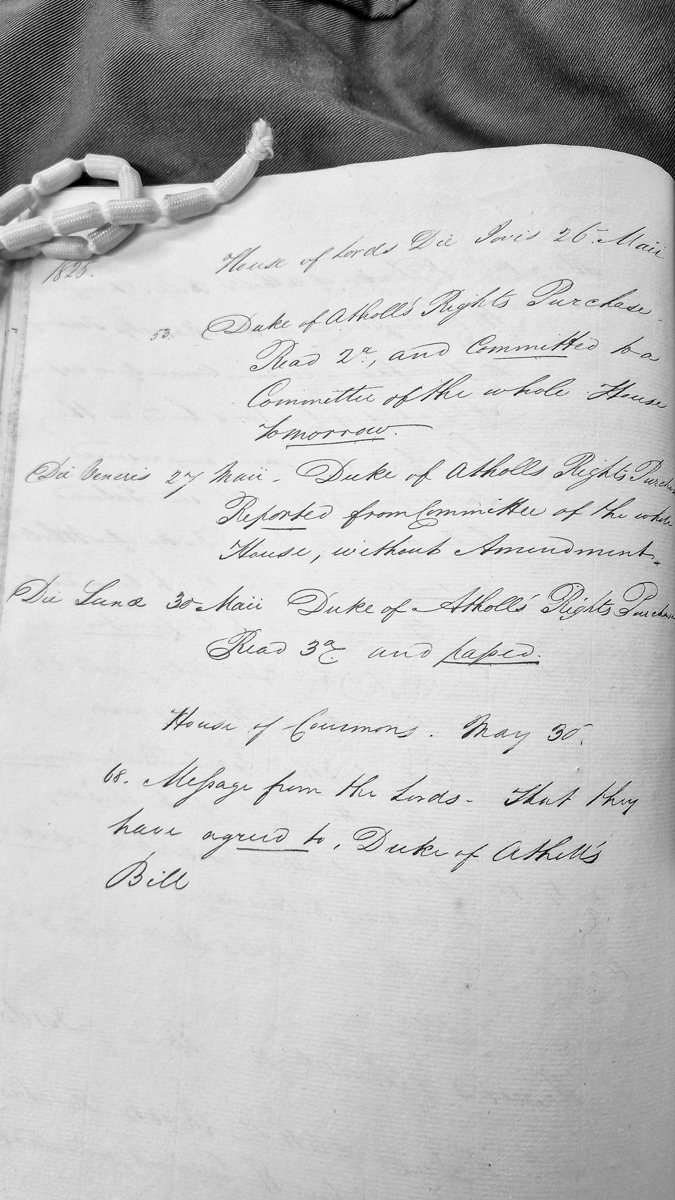 House of Lords Die Jovis 26 Maii
1825.
53. Duke of Atholl's Rights Purchase
Read 2a, and Committed to a
Committee of the whole House
tomorrow.
Die Veneris 27 Maii - Duke of Atholls Rights Purchase
Reported from Committee of the whole
House, without Amendment.
Die Lunæ 30 Maii Duke of Atholl's Rights Purchase
Read 3a and passed.
House of Commons. May 30.
68. Message from the Lords - That they
have agreed to, Duke of Atholl's
Bill